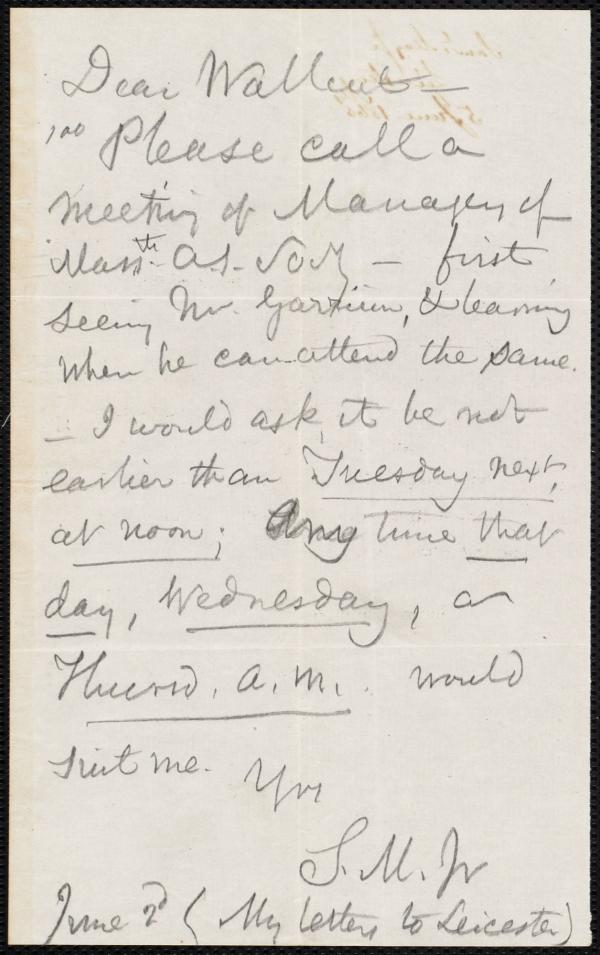 Dear Wallcut —
Please call a
meeting of Managers of
Mass.th A.S. Socy — first
seeing Mr. Garrison, & learning
when he can attend the same.
— I would ask it be not
earlier than Tuesday next,
at noon; Any time that
day, Wednesday, or
Thursd. A.M. would
suit me.
Yrs
S. M. Jr
June 2d (My letters to Leicester)